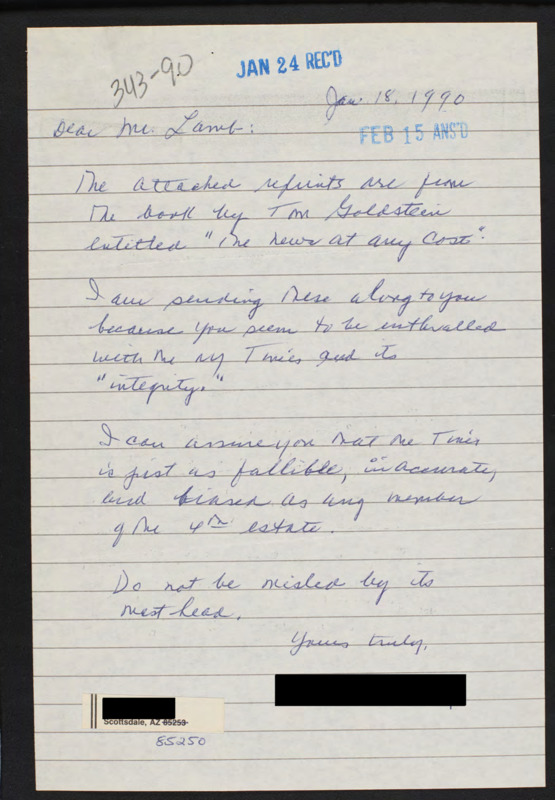 343-90
JAN 24 REC'D
Jan 18, 1990
Dear Mr. Lamb:
FEB 15 ANS'D
The attached reprints are from
the book by Tom Goldstein
entitled "The news at any cost".
I am sending these along to you
because you seem to be enthralled
with the ny Times and its
"integrity."
I can assure you that the Times
is just as fallible, inaccurate,
and biased as any member
of the 4th estate.
Do not be misled by its
mast head.
Yours truly,
Scottsdale, AZ 85253
85250